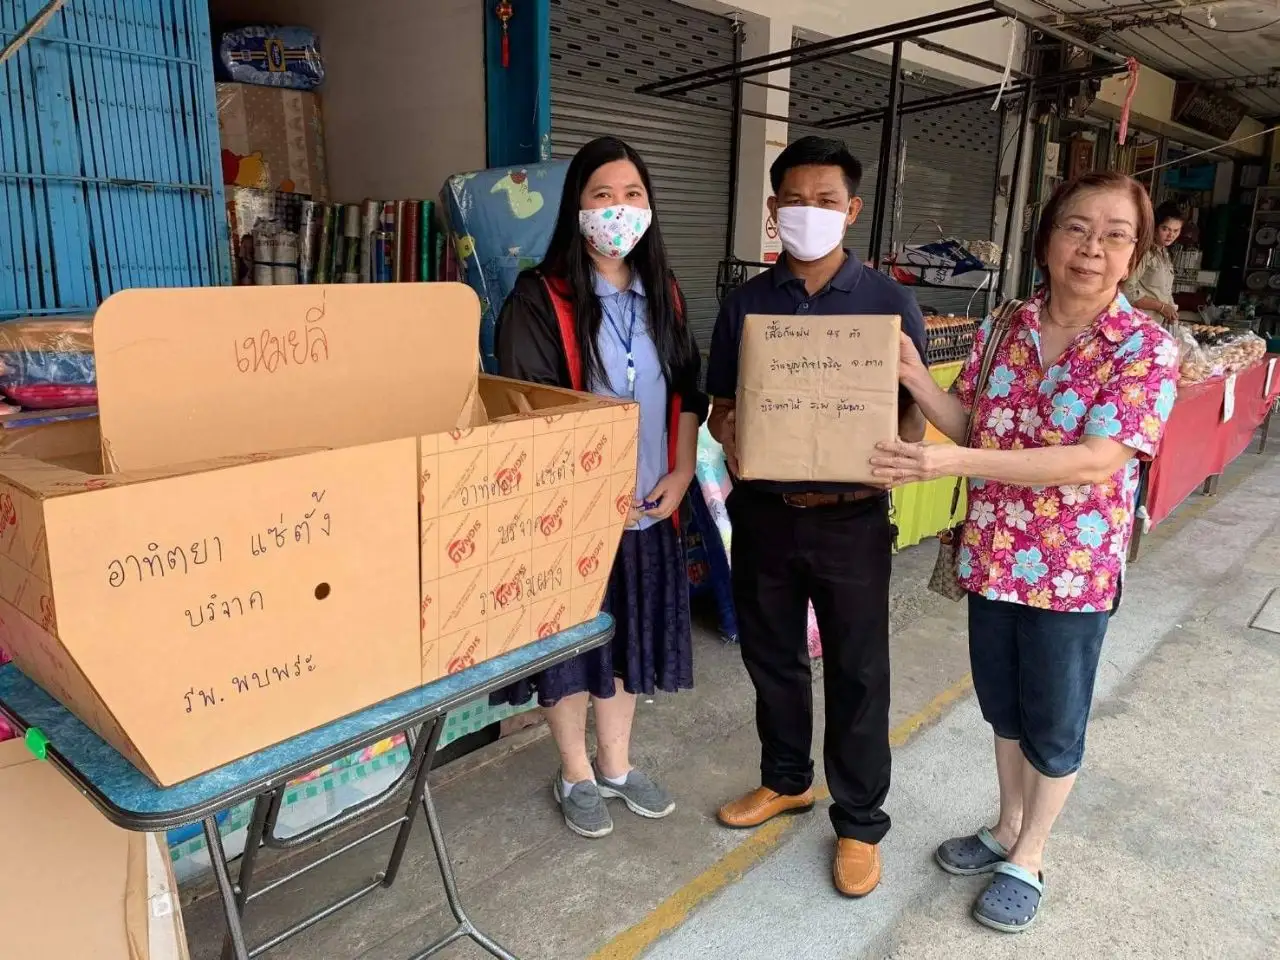 เหมยลี่
อาทิตยา แซ่ตั้ง
บริจาค
รพ. พบพระ
อาทิตยา แซ่ตั้ง
บริจาค
รพ. อุ้มผาง
SIGNAD
เสื้อกันฝน 45 ตัว
จ.ตาก
บริจาคให้ ร.พ อุ้มผาง